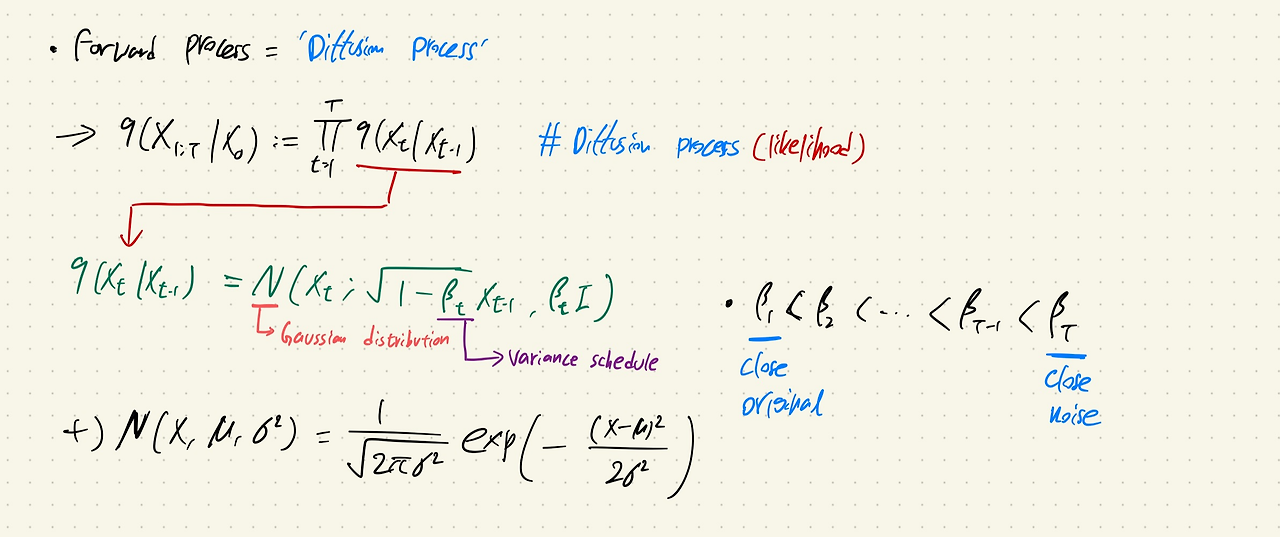 • Forward process = 'Diffusion Process'
→ q(X₁:T | X₀) := ∏ₜ₌₁ᵀ q(Xₜ | Xₜ₋₁) # Diffusion process (likelihood)
q(Xₜ | Xₜ₋₁) = N(Xₜ ; √(1-βₜ) Xₜ₋₁ , βₜ I)
↳ Gaussian distribution
→ Variance schedule
• β₁ < β₂ < ⋯ < β_T-1 < β_T
close original
close noise
+) N(X, μ, σ²) = 1/√(2πσ²) exp(- (X-μ)²/2σ²)